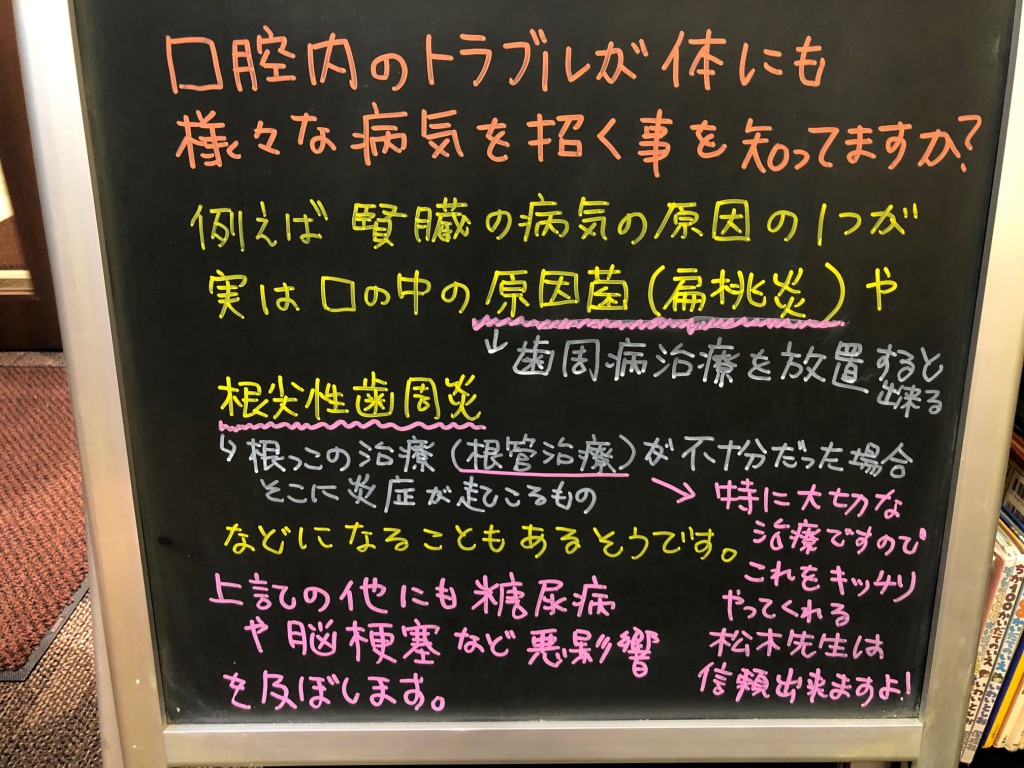 口腔内のトラブルが体にも
様々な病気を招く事を知ってますか?
例えば腎臓の病気の原因の1つが
実は口の中の原因菌(扁桃炎)や
↓歯周病治療を放置すると
出来る
根尖性歯周炎
↳根っこの治療(根管治療)が不十分だった場合
そこに炎症が起こるもの
などになることもあるそうです。
→特に大切な
治療ですので
これをキッチリ
やってくれる
松木先生は
信頼出来ますよ!
上記の他にも糖尿病
や脳梗塞など悪影響
を及ぼします。